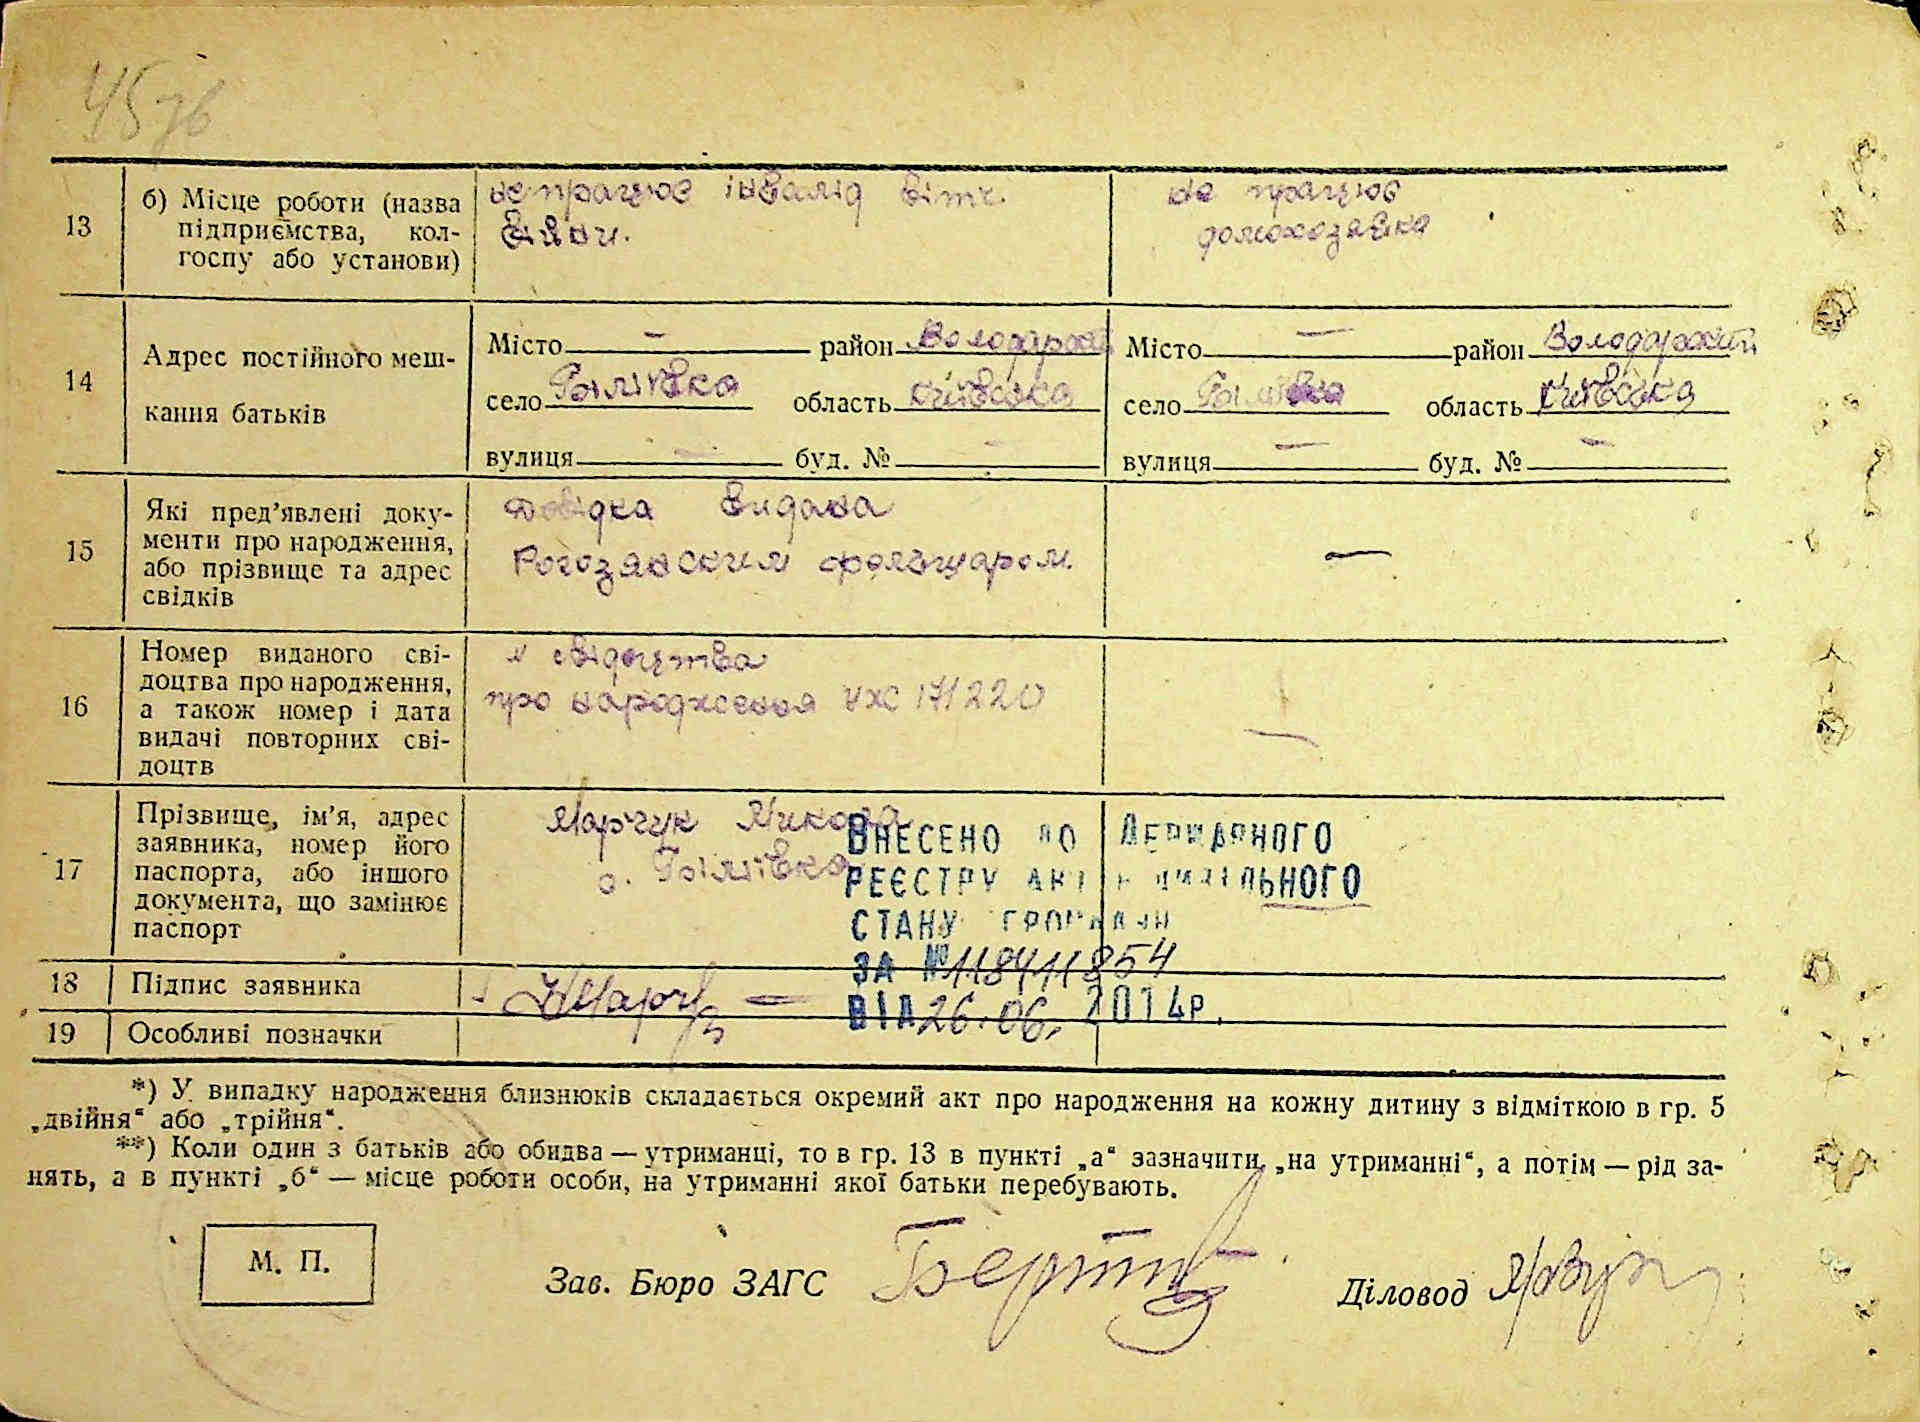 45 зв
13
б) Місце роботи (назва
підприємства, кол-
госпу або установи)
не працює інвалід вітч.
війни.
не працює
домохозяйка
14
Адрес постійного меш-
кання батьків
Місто — район Володарський
село Гайківка область Київська
вулиця — буд. № —
Місто — район Володарський
село область Київська
вулиця — буд. № —
15
Які пред'явлені доку-
менти про народження,
або прізвище та адрес
свідків
Довідка видана
Рогозянским фельшаром.
—
16
Номер виданого сві-
доцтва про народження,
а також номер і дата
видачі повторних сві-
доцтв
свідоцтва
про народження 171220
—
17
Прізвище, ім'я, адрес
заявника, номер його
паспорта, або іншого
документа, що замінює
паспорт
Марчук Микола
с.
ВНЕСЕНО ДО ДЕРЖАВНОГО
РЕЄСТРУ АКТІВ ЦИВІЛЬНОГО
СТАНУ ГРОМАДЯН
ЗА №118411854
ВІД 26.06. 2014р.
18
Підпис заявника
19
Особливі позначки
*) У випадку народження близнюків складається окремий акт про народження на кожну дитину з відміткою в гр. 5
„двійня“ або „трійня“.
**) Коли один з батьків або обидва — утриманці, то в гр. 13 в пункті „а“ зазначити „на утриманні“, а потім — рід за-
нять, а в пункті „б“ — місце роботи особи, на утриманні якої батьки перебувають.
М. П.
Зав. Бюро ЗАГС
Діловод